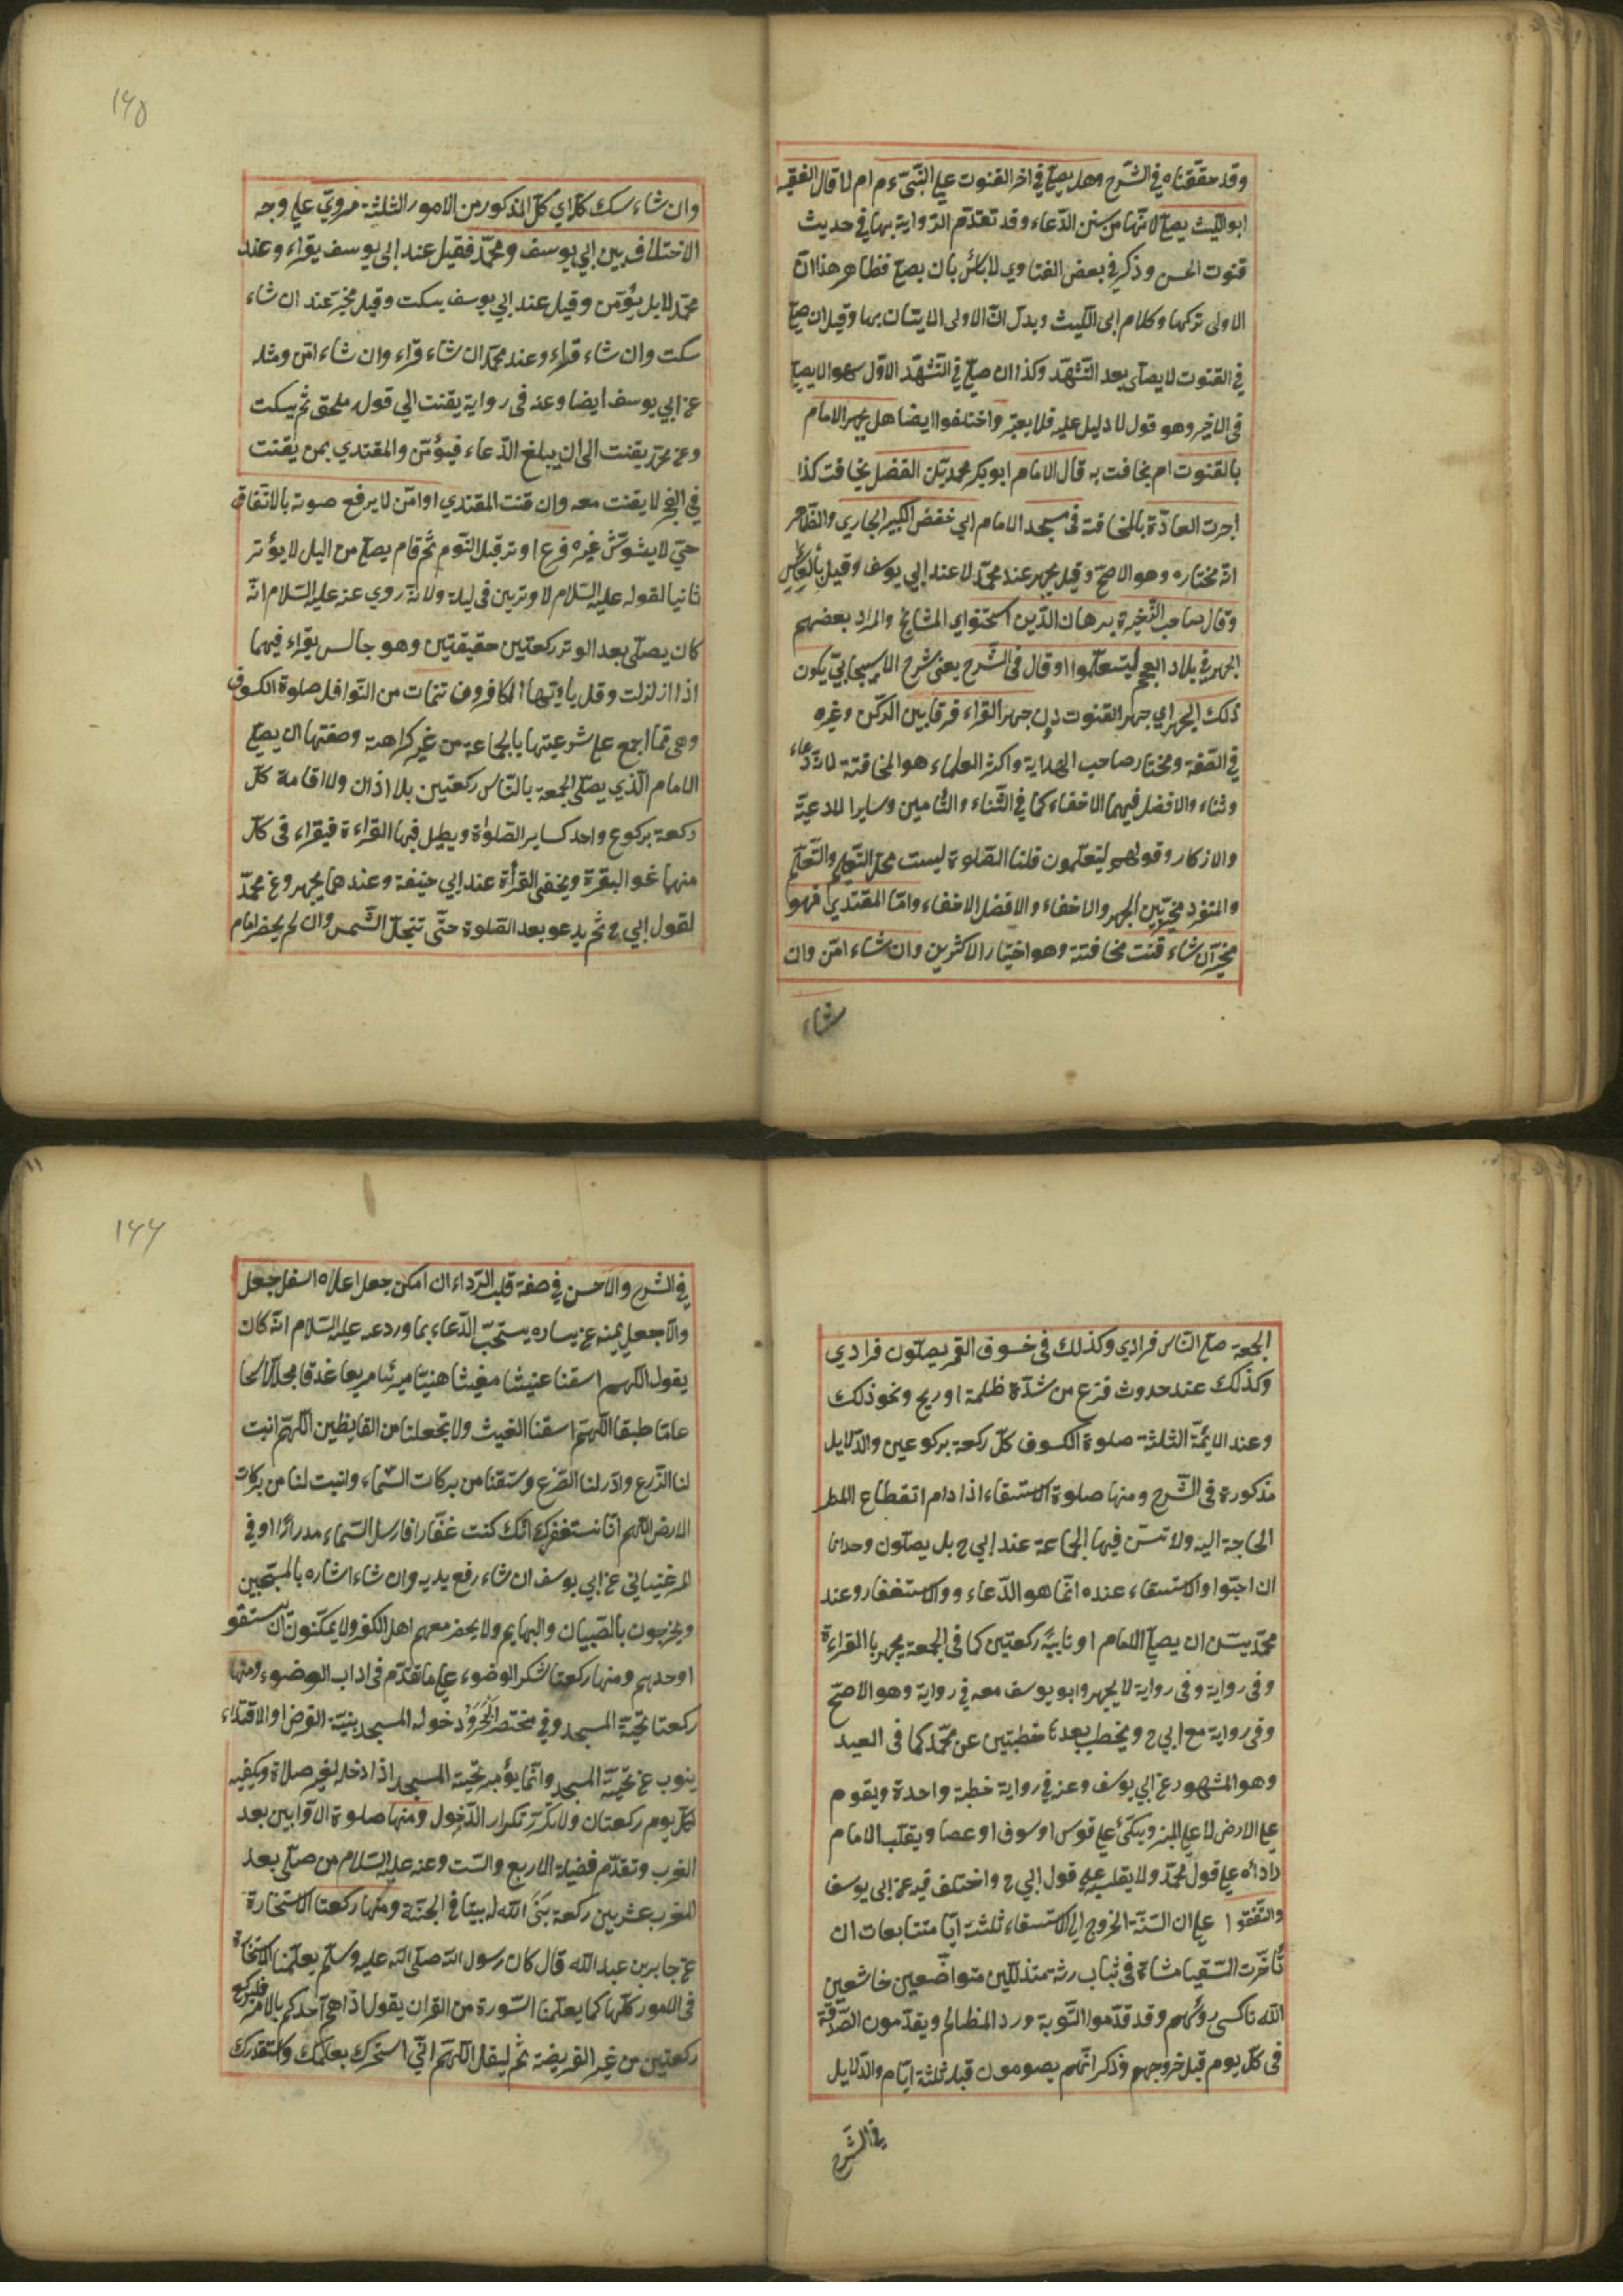 وقد حققناه في الشرح وهل يصلي في اخر القنوت علي النبي ءم ام لا قال الفقيه
ابو الليث يصلي لانها من سنن الدعاء وقد تقدم الرواية بها في حديث
قنوت الحسن وذكر في بعض الفتاوي لا باس بان يصلي فظاهر هذا ان
الاولى تركها وكلام ابي الليث ويدل ان الاولى الايتان بها وقيل ان صلي
في القنوت لا يصلى بعد التشهد وكذا ان صلي في التشهد الاول سهوا لا يصلي
في الاخير وهو قول لا دليل عليه فلا يعبر واختلفوا ايضا هل يجهر الامام
بالقنوت ام يخافت به قال الامام ابو بكر محمد بن الفضل يخافت كذا
اجرت العادة بالمخافتة في مسجد الامام ابي حفص الكبير البخاري والظاهر
انه مختاره وهو الاصح وقيل يجهر عند محمد لا عند ابي يوسف وقيل بالعكس
وقال صاحب الذخيرة برهان الدين استحسنوا اي المشايخ والمراد بعضهم
الجهر في بلاد العجم ليتعلموا وقال في الشرح يعني شرح الاسبيجابي يكون
ذلك الجهر اي جهر القنوت دون جهر القراء فرقا بين الركن وغيره
في الصفة ومختار صاحب الهداية واكثر العلماء هو المخافتة لانه دعاء
وثناء والافضل فيهما الاخفاء كما في الثناء والتامين وساير الادعية
والاذكار وقولهم ليتعلمون قلنا الصلوة ليست محل التعليم والتعلم
والمنفرد مخير بين الجهر والاخفاء والافضل الاخفاء واما المقتدي فهو
مخير ان شاء قنت مخافتة وهو اختيار الاكثرين وان شاء امن وان
شاء
١٦٥
وان شاء سكت كل اي كل المذكور من الامور الثلثة مروي علي وجه
الاختلاف بين ابي يوسف ومحمد فقيل عند ابي يوسف يقراء وعند
محمد لا بل يؤمن وقيل عند ابي يوسف يسكت وقيل مخير عند ان شاء
سكت وان شاء قراء وعند محمد ان شاء قراء وان شاء امن ومثله
عن ابي يوسف ايضا وعنه في رواية يقنت الي قوله ملحق ثم يسكت
وعن محمد يقنت الى ان يبلغ الدعاء فيؤمن والمقتدي بمن يقنت
في الفجر لا يقنت معه وان قنت المقتدي او امن لا يرفع صوته بالاتفاق
حتي لا يشوش غيره فرع اوتر قبل النوم ثم قام يصلي من اليل لا يؤتر
ثانيا لقوله عليه السلام لا وترين في ليلة ولانه روي عنه عليه السلام انه
كان يصلى بعد الوتر ركعتين حقيقيتين وهو جالس يقراء فيهما
اذا ازلزلت وقل يا ايها الكافرون تتمات من النوافل صلوة الكسوف
وهي مما اجمع علي شرعيتها بالجماعة من غير كراهة وصفتها ان يصلي
الامام الذي يصلى الجمعة بالناس ركعتين بلا اذان ولا اقامة كل
ركعة بركوع واحد كساير الصلواة ويطيل فيها القراءة فيقراء في كل
منهما نحو البقرة ويخفى القرأة عند ابي حنيفة وعندهما يجهر وعن محمد
لقول ابي ح ثم يدعو بعد الصلوة حتى تنجلى الشمس وان لم يحضر امام
الجمعة صلي الناس فرادي وكذلك في خسوف القمر يصلون فرادي
وكذلك عند حدوث فزع من شدة ظلمة او ريح ونحو ذلك
وعند الايمة الثلثة صلوة الكسوف كل ركعة بركوعين والدلايل
مذكورة في الشرح ومنها صلوة الاستسقاء اذا دام انقطاع المطر
الحاجة اليه ولا تسن فيها الجماعة عند ابي ح بل يصلون وحدانا
ان احبوا والاستسقاء عنده انما هو الدعاء و والاستغفار وعند
محمد يسن ان يصلي الامام او نايبه ركعتين كما في الجمعة يجهر باالقراءة
وفي رواية وفي رواية لا يجهر وابو يوسف معه في رواية وهو الاصح
وفي رواية مع ابي ح ويخطب بعدها خطبتين عن محمد كما في العيد
وهو المشهود عن ابي يوسف وعنه في رواية خطبة واحدة ويقوم
علي الارض لا علي المنبر ويتكئ علي قوس او سوف او عصا ويقلب الامام
رداءه علي قول محمد ولا يقلب علي قول ابي ح واختلف فيه عن ابي يوسف
واتفقوا علي ان السنة الخروج الي الاستسقاء ثلثة ايام متتابعات ان
تأخرت السقيا مشاة في ثياب رثة متذللين متواضعين خاشعين
الله ناكسي رؤسهم وقد قدموا التوبة ورد المظالم ويقدمون الصدقة
في كل يوم قبل خروجهم وذكر انهم يصومون قبله ثلثة ايام والدلايل
في الشرح
١٦٦
في الشرح والاحسن في صفة قلب الرداء ان امكن جعل اعلاه اسفل جعل
والا جعل يمينه عن يساره يستحب الدعاء بما ورد عنه عليه السلام انه كان
يقول اللهم اسقنا غيثا مغيثا هنيئا مريئا مريعا غدقا مجللا سحا
عاما طبقا اللهم اسقنا الغيث ولا تجعلنا من القانطين اللهم انبت
لنا الزرع وادر لنا الضرع وسقنا من بركات السماء وانبت لنا من بركات
الارض اللهم انا نستغفرك انك كنت غفارا فارسل السماء مدرارا وفي
المرغيناني عن ابي يوسف ان شاء رفع يديه وان شاء اشاره بالمسبحتين
ويخرجون بالصبيان والبهايم ولا يحضر معهم اهل الكفر ولا يمكنون ان يستقو
اوحدهم ومنها ركعتا شكر الوضوء علي ما تقدم في اداب الوضوء ومنها
ركعتا تحية المسجد وفي مختصر البحر ودخوله المسجد بنية الفرض او الاقتداء
ينوب عن تحية المسجد وانما يؤمر بتحية المسجد اذا دخله لغير صلاة ويكفيه
لكل يوم ركعتان ولا تكرر تكرار الدخول ومنها صلوة الاوابين بعد
المغرب وتقدم فضيلة الاربع والست وعنه عليه السلام من صلى بعد
المغرب عشرين ركعة بنى الله له بيتا في الجنة ومنها ركعتا الاستخارة
عن جابر بن عبد الله قال كان رسول الله صلى الله عليه وسلم يعلمنا الاستخارة
في الامور كلها كما يعلمنا السورة من القران يقول اذا هم احدكم بالامر فليركع
ركعتين من غير الفريضة ثم ليقل اللهم اني استخيرك بعلمك واستقدرك